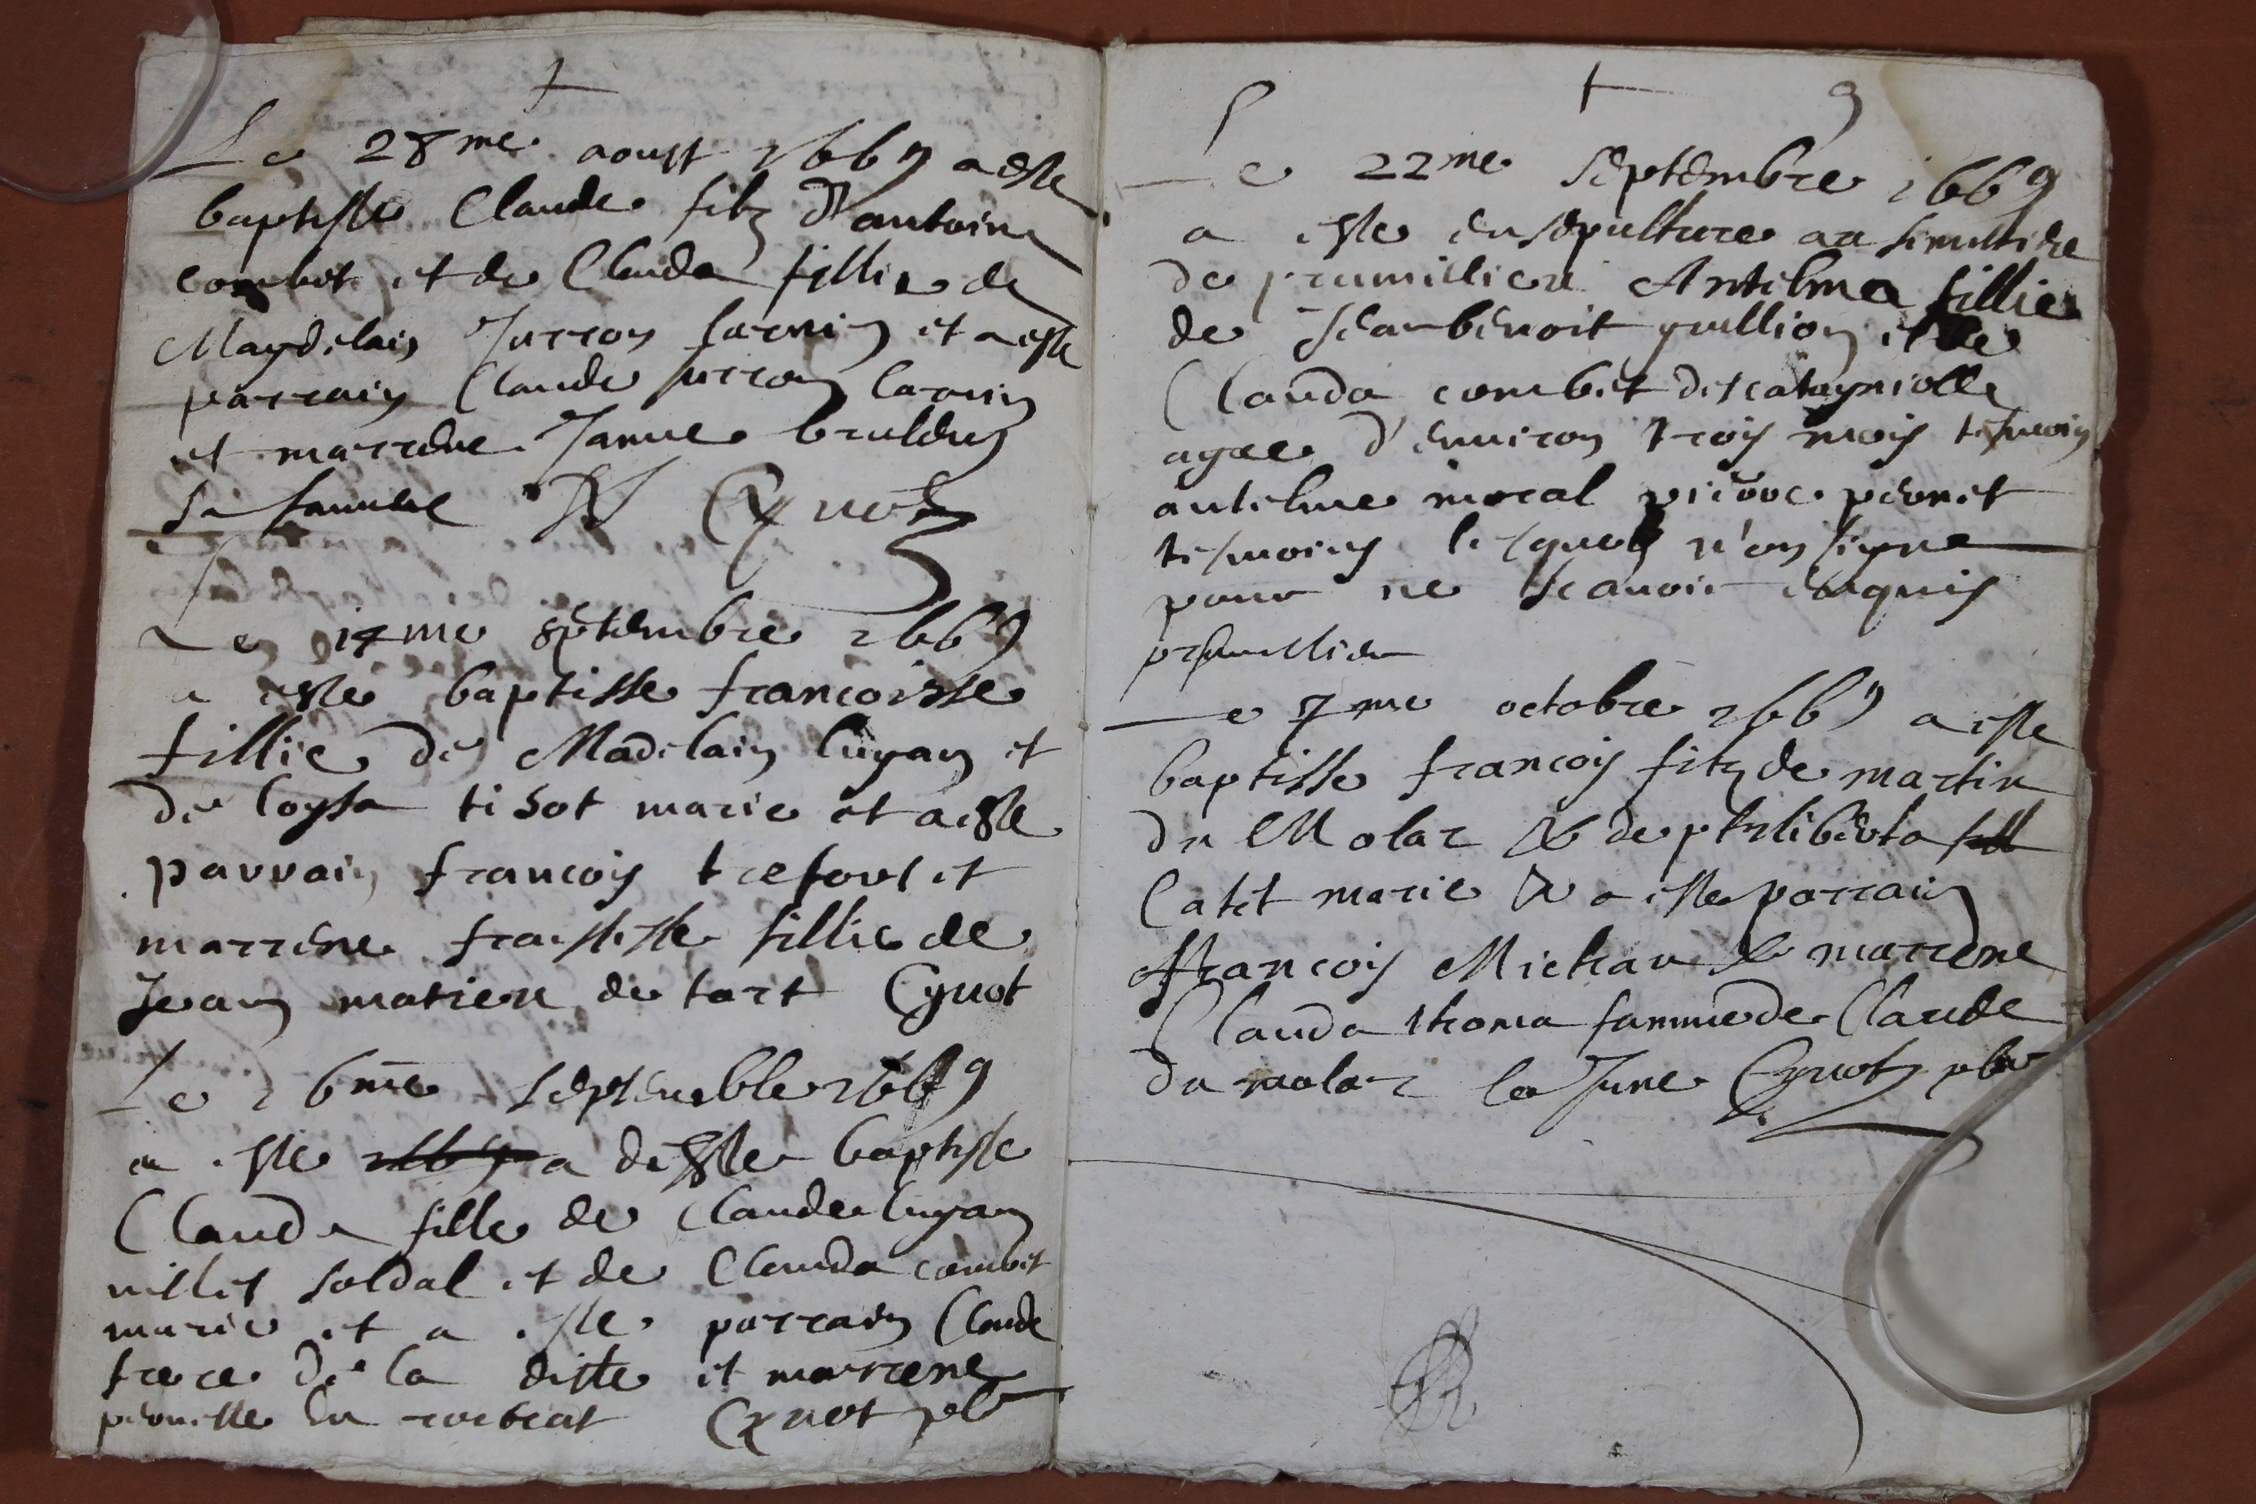 Le 28me aoust 1669 a este
baptisse Claude filz d'antoine
combet et de Clauda fillie de
Magdelain Jurron et a este
parrain Claude Jurron
et marrene Janne
sa famme Cynot
Le 14me septembre 1669
a este baptisse francoisse
fillie de Madelain lugan et
de loysa tisot marie et a este
parrain francoys trefort et
marrene fillie de
Jean matieu de tart Cynot
Le 16me septemble 1669
a este a deste baptisse
Clauda fille de Claude lugan
millet soldal et de Clauda combet
marie et a este parrain Claude
frere de la ditte et marrene
pernette Cynot pbr
9
Le 22me septembre 1669
a este ensepulture au simitiere
de prumillieu Antelma fillie
de Jeanbenoit gullion et de
Clauda combet des catagniolle
agee d'environ troys moys tesmoin
antelme moral pierre pernet
tesmoins lesquels n'on signe
pour ne scavoir enquis
prumillieu
Le 7me octobre 1669 a este
baptisse francoys filz de martin
du Molar & de philiberta
Catet marie & a este parrain
francoys Michau & marrene
Clauda thoma famme de Claude
du molar le June Cynot pbr